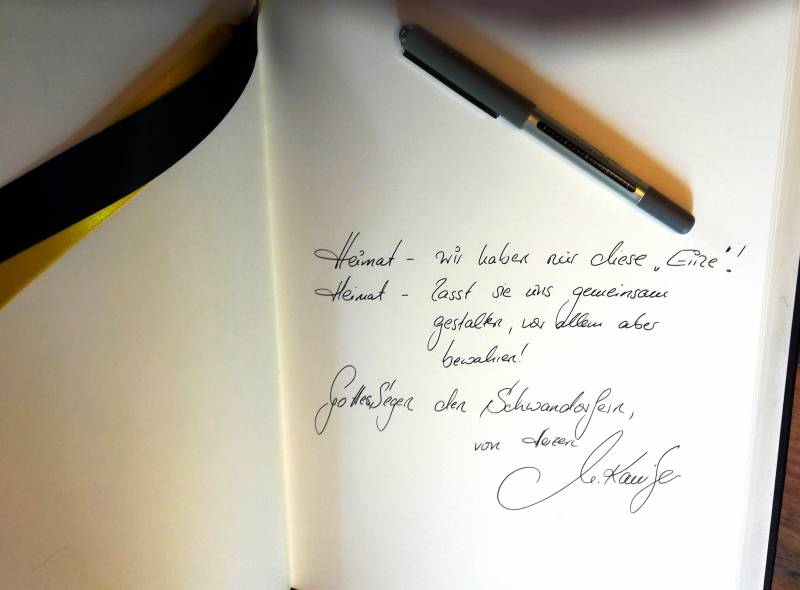 Heimat - wir haben nur diese „Eine"!
Heimat - lasst sie uns gemeinsam
gestalten, vor allem aber
bewahren!
Gottes Segen den Schwandorfern,
von